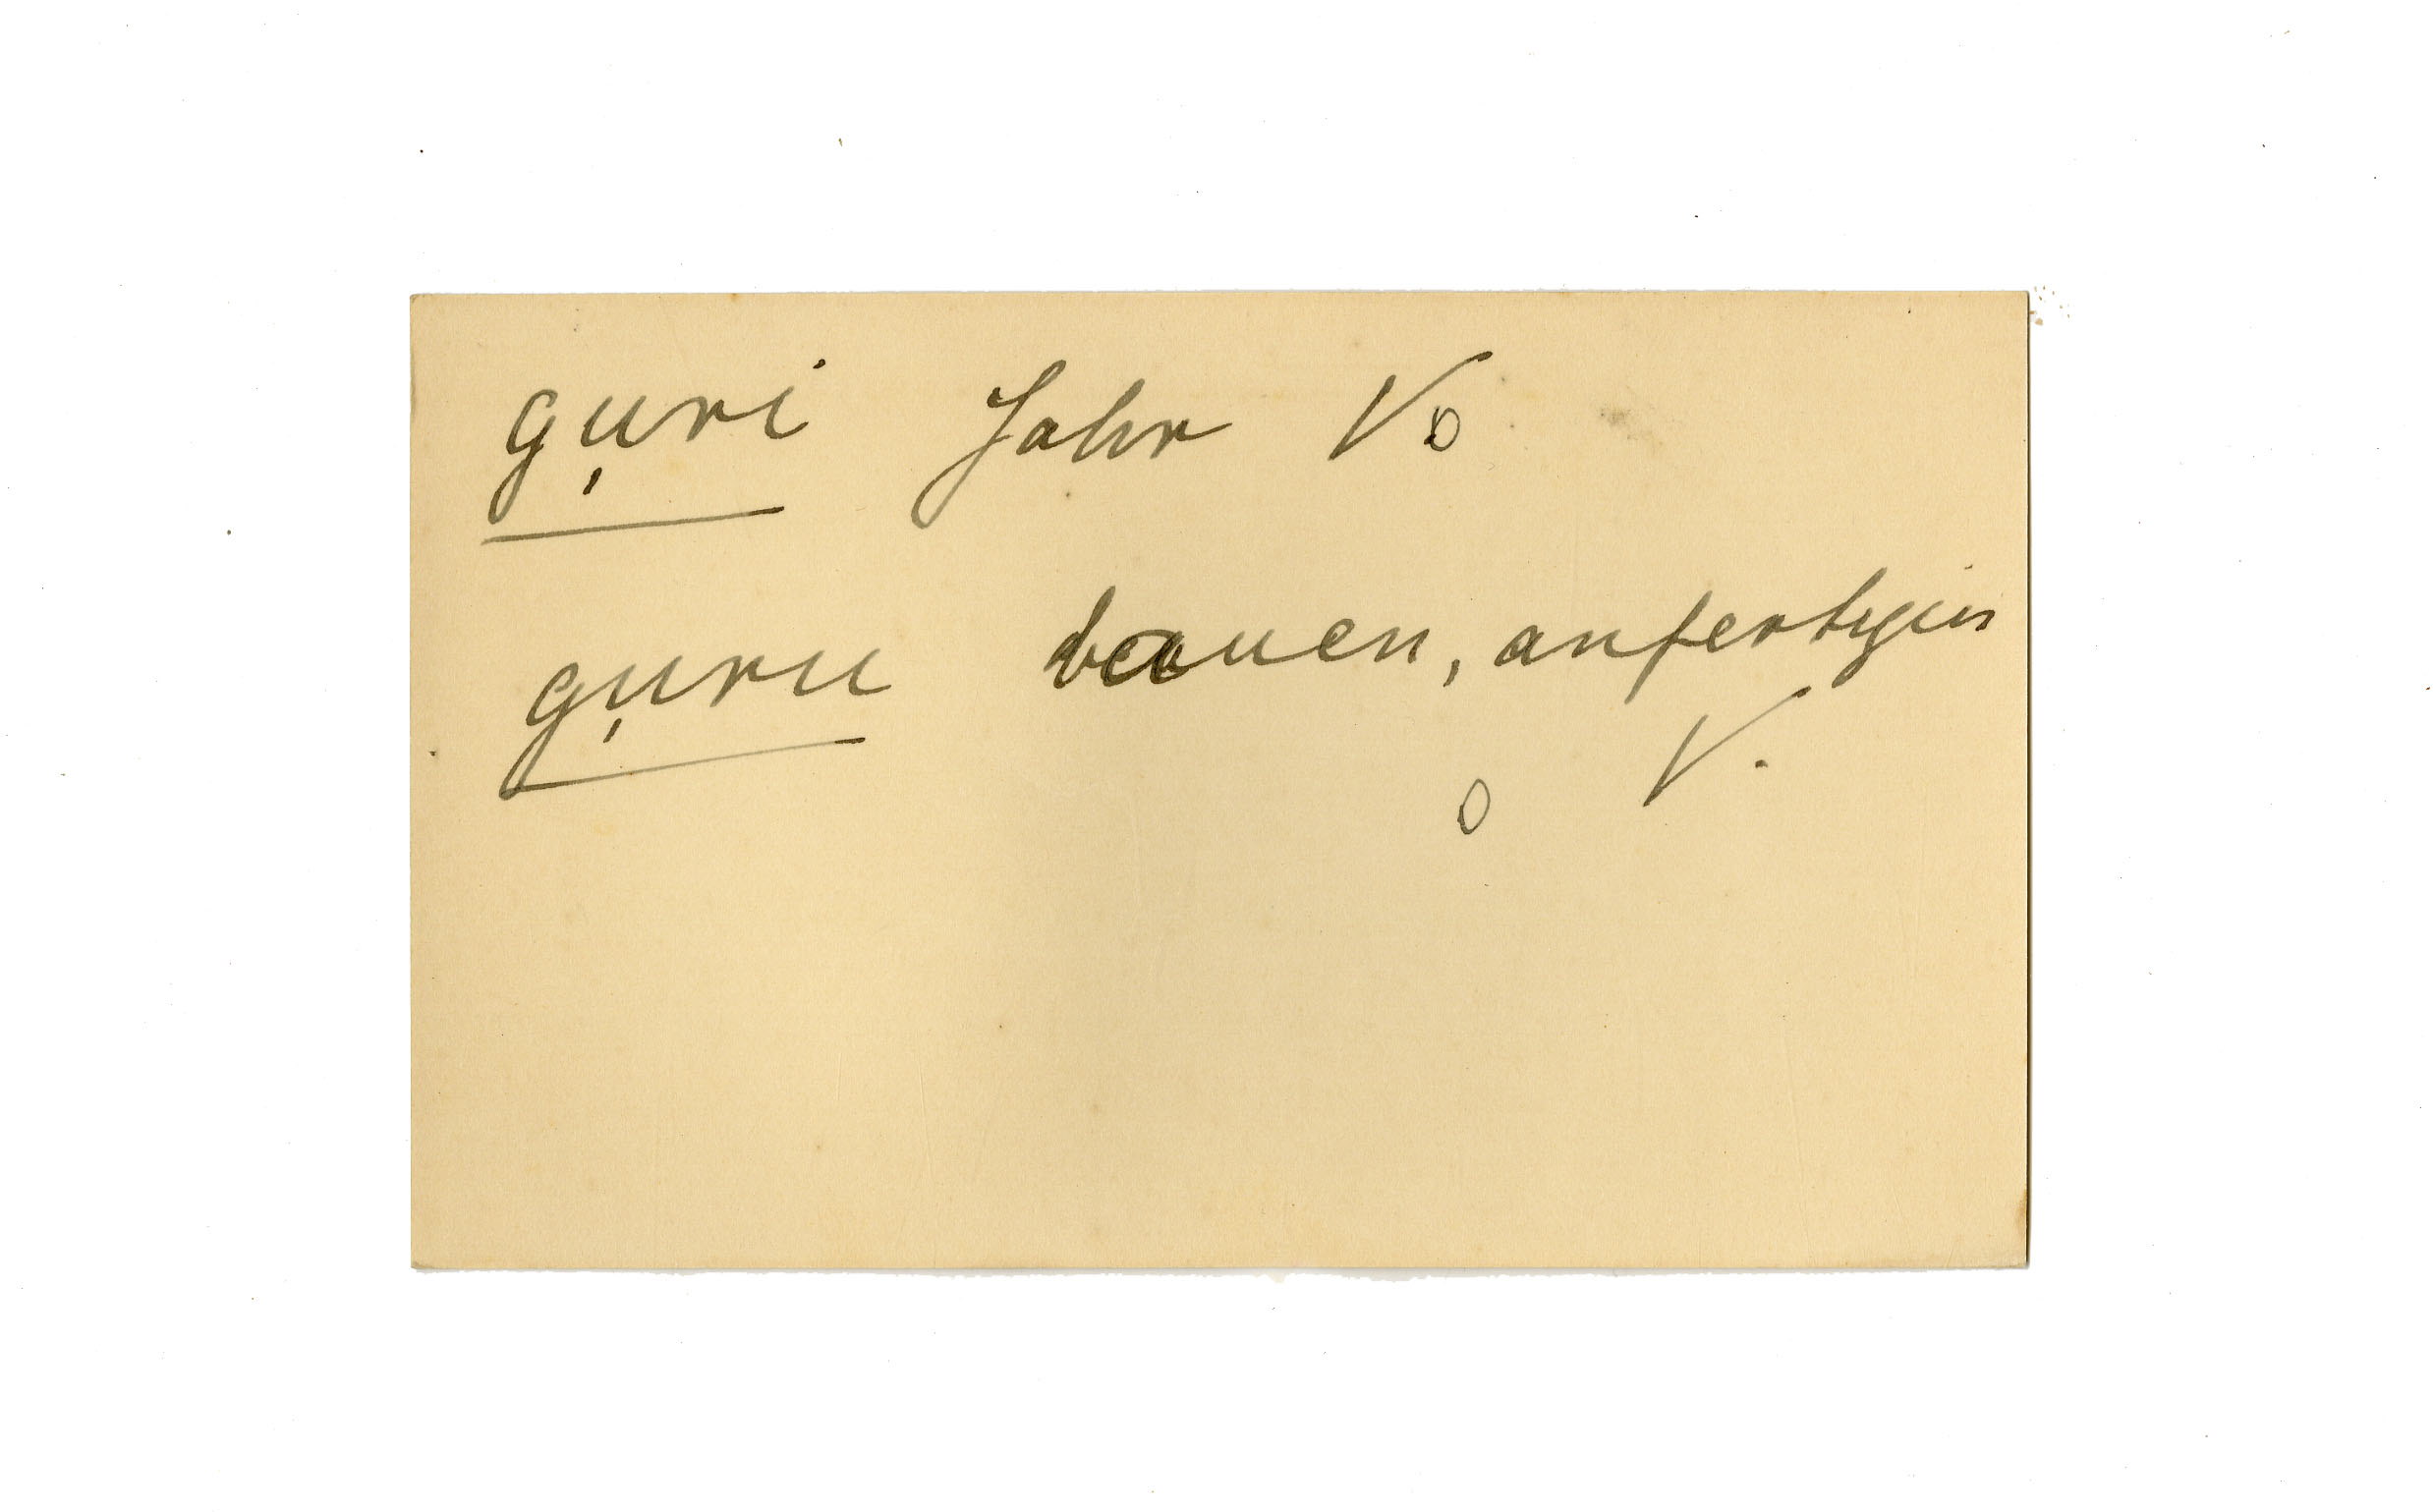 gụri Jahr V.
gụru bauen, anfertigen
V.